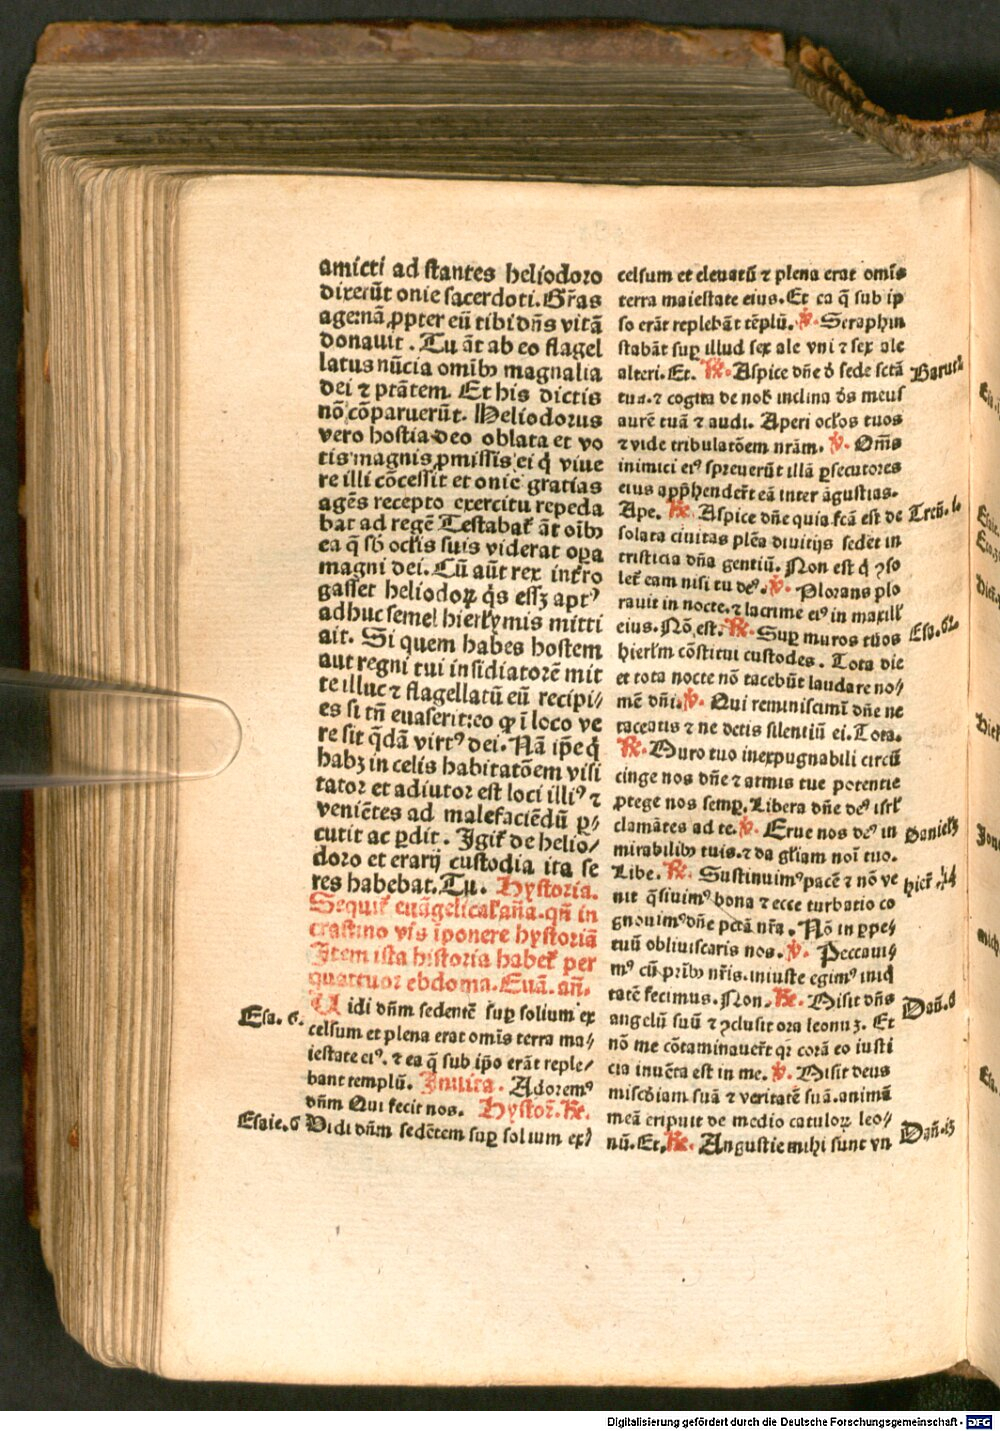 amicti ad stantes heliodoro
dixerūt onie sacerdoti. Gr̄as
age: nā ꝓpter eū tibi dn̄s vitā
donauit . Tu āt ab eo flagel
latus nūcia omībꝰ magnalia
dei ⁊ ptātem. Et his dictis
nō cōparuerūt. Heliodorus
vero hostia deo oblata et vo
tis magnis ꝓmissis ei q̇ viue
re illi cōcessit et onie gratias
agēs recepto exercitu repeda
bat ad regē Testabat̄ āt oībꝰ
ea q̄ sb̄ ocl̄is suis viderat oꝑa
magni dei. Cū aūt rex int̄ro
gasset heliodoꝝ q̇s eēꝫ aptꝰ
adhuc semel hierl̄ymis mitti
ait. Si quem habes hostem
aut regni tui insidiatorē mit
te illuc ⁊ flagellatū eū recipi/
es si tn̄ euaserit: eo ꝙ ī loco ve
re sit q̄dā virtꝰ dei. Nā ip̄e q̇
habꝫ in celis habitatōem visi
tator et adiutor est loci illiꝰ ⁊
veniētes ad malefaciēdū ꝑ/
cutit ac ꝑdit . Igit̄ de helio/
doro et erarij custodia ita se
res habebat. Tu. Hystoria.
Sequit̄ euāgelical̄ an̄a. qn̄ in
crastino vis īponere hystoriā
Item ista historia habet̄ per
quattuor ebdoma. Euā. an̄.
Esa. 6. Uidi dn̄m sedentē suꝑ solium ex
celsum et plena erat omīs terra ma/
iestate eiꝰ. ⁊ ea q̄ sub ip̄o erāt reple/
bant templū. Inuita. Adoremꝰ
dn̄m Qui fecit nos. Hystor̄. R̄.
Esaie. 6 Vidi dn̄m sedētem suꝑ solium ex/
celsum et eleuatū ⁊ plena erat omīs
terra maiestate eius. Et ea q̄ sub ip
so erāt replebāt tēplū. v̄. Seraphin
stabāt suꝑ illud sex ale vni ⁊ sex ale
alteri. Et. R̄. Aspice dn̄e d̄ sede sctā Baruch
tua. ⁊ cogita de nob̄ inclina ds̄ meus
aurē tuā ⁊ audi. Aperi ocl̄os tuos
⁊ vide tribulatōem nrām. v̄. Om̄s
inimici eiꝰ spreuerūt illā ꝑsecutores
eius app̄hendert̄ eā inter āgustias.
Ape. R̄. Aspice dn̄e quia fcā est de Tren̄. 1.
solata ciuitas plēa diuitijs sedet in
tristicia dn̄a gentiū. Non est q̇ ꝯso
let̄ eam nisi tu deꝰ. v̄. Plorans plo
rauit in nocte. ⁊ lacrime eiꝰ in maxill̄
eius. Nō est. R̄. Suꝑ muros tuos Esa. 62.
hierl̄m cōstitui custodes. Tota die
et tota nocte nō tacebūt laudare no/
mē dn̄i. v̄. Qui reminiscimī dn̄e ne
taceatis ⁊ ne detis silentiū ei. Tota.
R̄. Muro tuo inexpugnabili circū
cinge nos dn̄e ⁊ armis tue potentie
ꝓtege nos semꝑ. Libera dn̄e deꝰ isrl̄
clamātes ad te. v̄. Erue nos deꝰ in Daniel̄ 3
mirabilibꝰ tuis. ⁊ da gl̄iam noī tuo.
Libe. R̄. Sustinuimꝰ pacē ⁊ nō ve hier̄. 14
nit q̄siuimꝰ bona ⁊ ecce turbatio co
gnouimꝰ dn̄e pctā nr̄a. Nō in ꝑpe/
tuū obliuiscaris nos. v̄. Peccaui/
mꝰ cū pribꝰ nr̄is. iniuste egimꝰ iniq̇
tatē fecimus. Non. R̄. Misit dn̄s Dan̄. 6
angelū suū ⁊ ꝯclusit ora leonuꝫ. Et
nō me cōtaminauert̄ qꝛ corā eo iusti
cia inuēta est in me. v̄. Misit deus
misc̄diam suā ⁊ veritatē suā. animā
meā eripuit de medio catuloꝝ leo/
nū. Et. R̄. Angustie mihi sunt vn Dan̄. 13